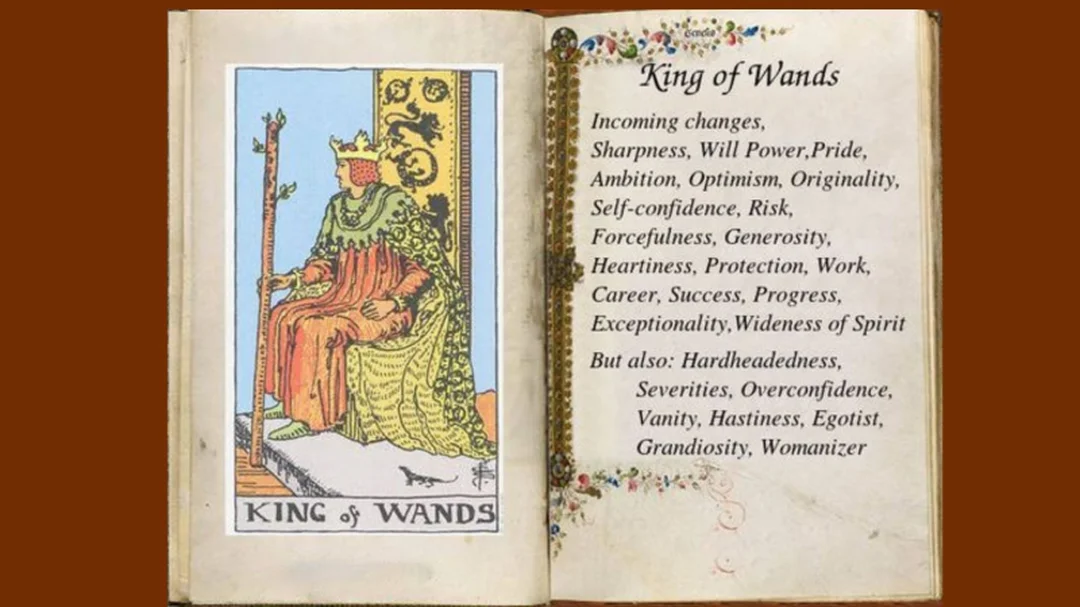 KING of WANDS
King of Wands
Incoming changes,
Sharpness, Will Power,Pride,
Ambition, Optimism, Originality,
Self-confidence, Risk,
Forcefulness, Generosity,
Heartiness, Protection, Work,
Career, Success, Progress,
Exceptionality,Wideness of Spirit
But also: Hardheadedness,
Severities, Overconfidence,
Vanity, Hastiness, Egotist,
Grandiosity, Womanizer